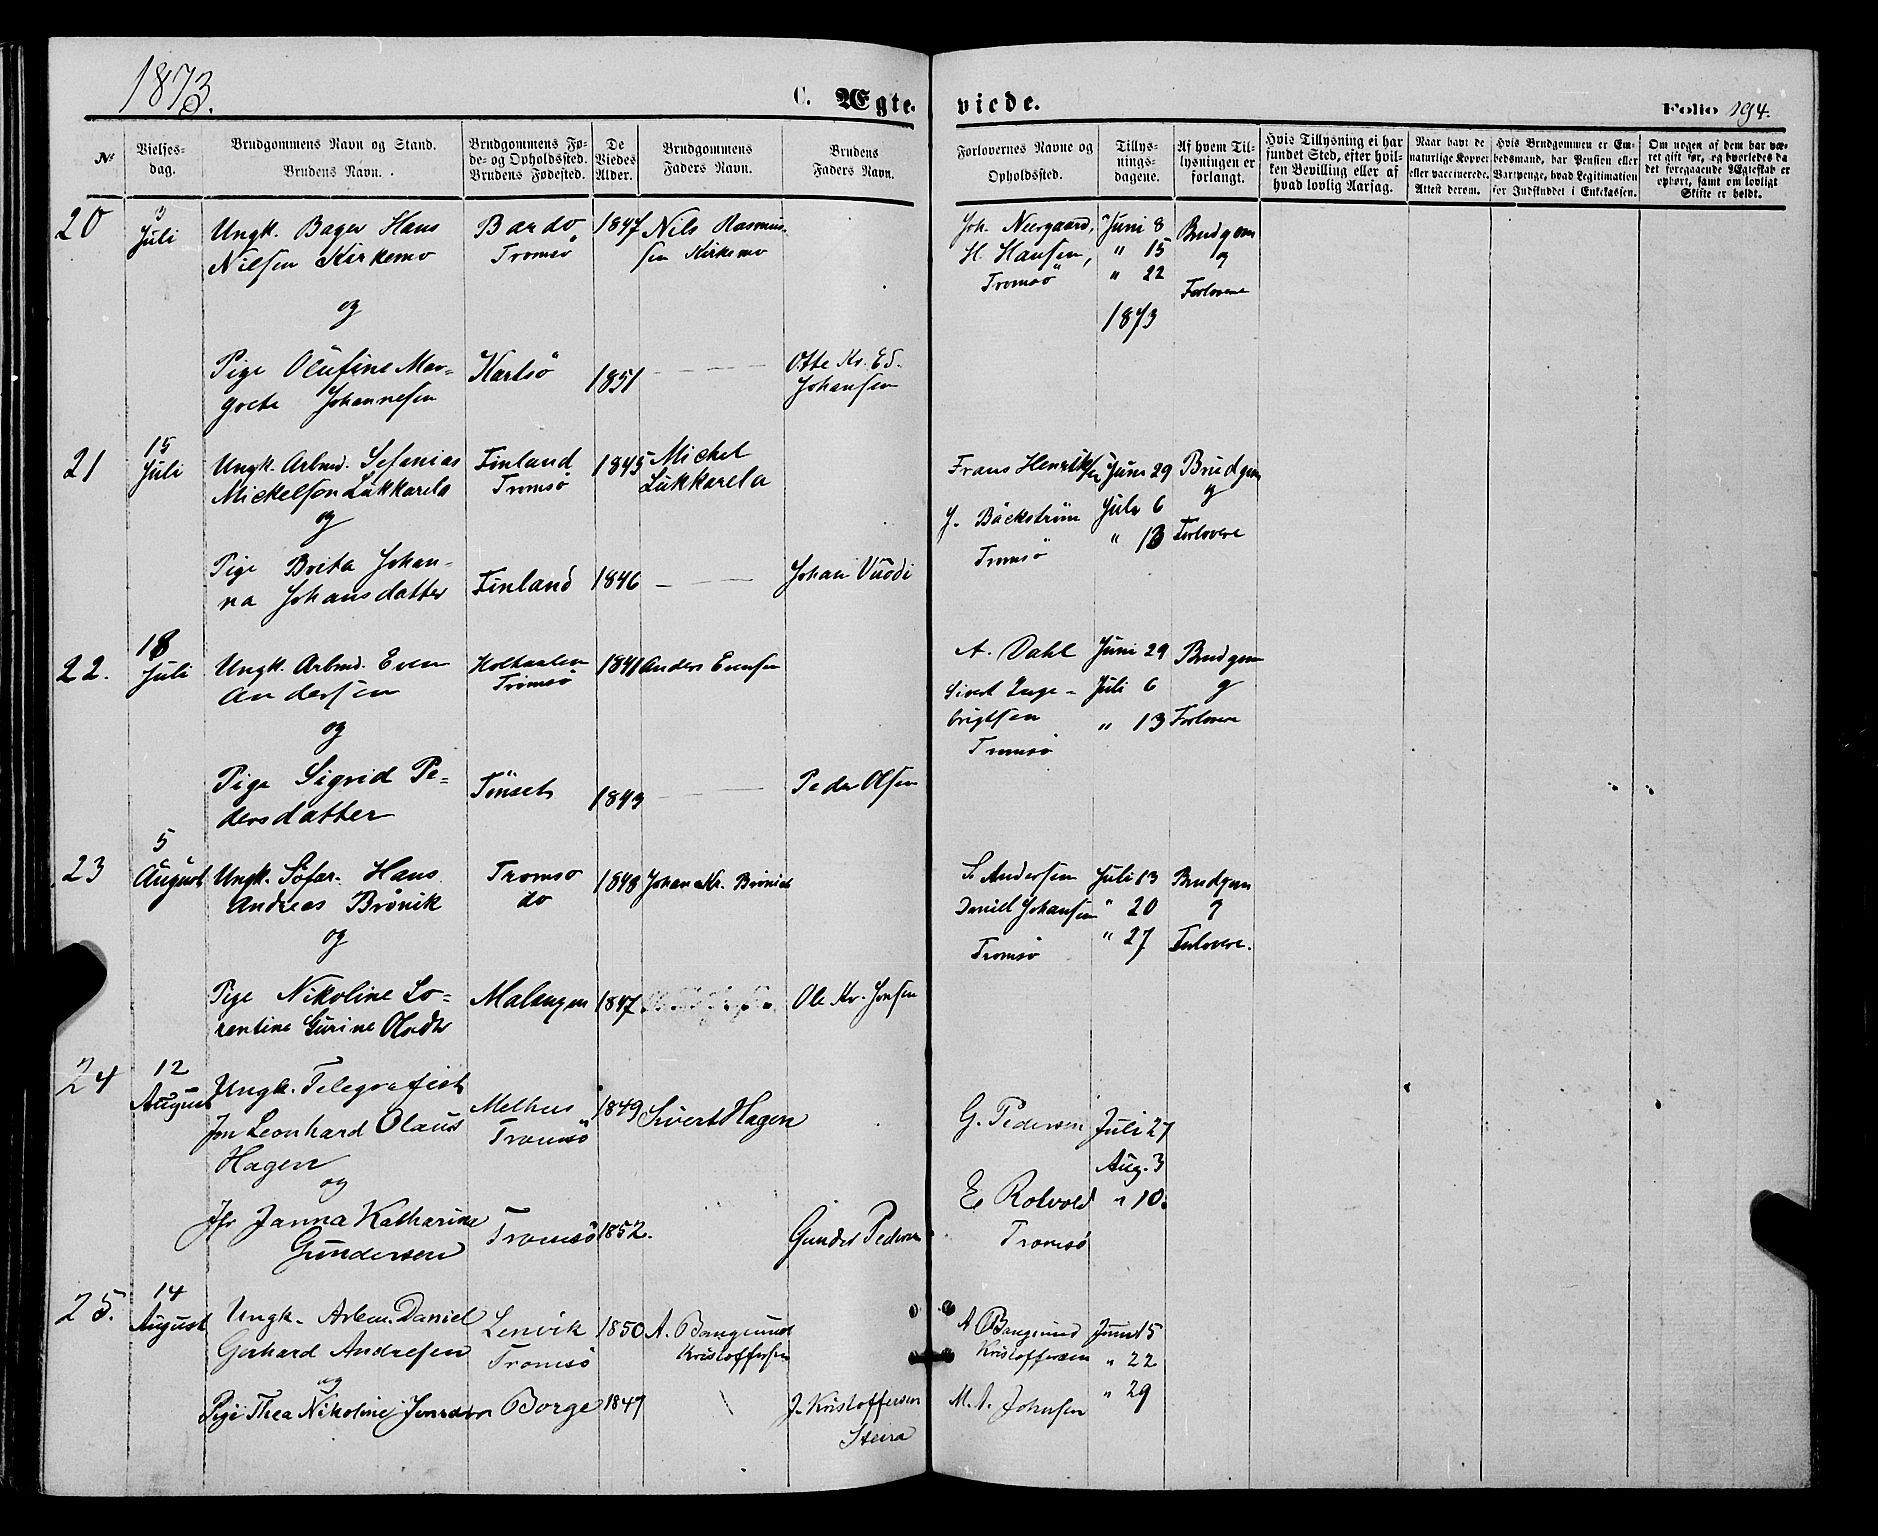 1873.
C. Ægte-
viede.
Folio 194.
No
Vielses-
dag.
Brudgommens Navn og Stand.
Brudens Navn.
Brudgommens Fø-
de- og Opholdssted.
Brudens Fødested.
De
Viedes
Alder.
Brudgommens
Faders Navn.
Brudens
Faders Navn.
Forlovernes Navne og
Opholdssted.
Tillys-
nings-
dagene.
Af hvem Til-
lysningen er
forlangt.
Hvis Tillysning ei har
fundet Sted, efter hvil-
ken Bevilling eller af
hvad lovlig Aarsag.
Naar havt de
naturlige Kopper
eller vaccinerede.
Attest derom.
Hvis Brudgommen er Em-
bedsmand, har Pension eller
Vartpenge, hvad Legitimation
for Indskuddet i Enkekassen.
Om nogen af dem har væ-
ret gift før, og hvorledes da
det foregaaende Ægteskab er
ophørt, samt om lovligt
Skifte er holdt.
20
3
Juli
Ungk. Bager Hans
Nilsen Kirkemo
og
Pige Olufine Mar-
grete Johannesen
Bardo
Tromsö
Karlsö
1847
1851
Nils Rasmus-
sen Kirkemo
Otte Kr. Ed.
Johansen
Joh. Neergaard,
H. Hansen,
Tromsö
Juni 8
" 15
" 22
1873
Brudgom
og
Forlovere
21
15
Juli
Ungk. Arbmd. Sefanias
Mickelson Lukkarela
og
Pige Brita Johan-
na Johansdatter
Finland
Tromsö
Finland
1845
1846
Michel
Lukkarela
Johan Vuodi
Frans Henriksen
J. Bäckström
Tromsö
Juni 29
Juli 6
" 13
Brudgom
og
Forlovere
22.
18
Juli
Ungk. Arbmd. Even
Andersen
og
Pige Sigrid Pe-
dersdatter
Holtaalen
Tromsö
Tönset
1841
1843
Anders Evensen
Peder Olsen
A. Dahl
Sivert Inge-
brigtsen
Tromsö
Juni 29
Juli 6
" 13
Brudgom
og
Forlovere
23
5
August
Ungk. Söfar. Hans
Andreas Brönik
og
Pige Nikoline Lo-
rentine Gurine Olsdtr
Tromsö
do
Malangen
1848
1847
Johan Kr. Brönick
Ole Kr. Jonsen
S. Andersen
Daniel Johansen
Tromsö
Juli 13
" 20
" 27
Brudgom
og
Forlovere.
24
12
August
Ungk. Telegrafist
Jon Leonhard Olaus
Hagen
og
Jfr Janna Katharine
Gundersen
Melhus
Tromsö
Tromsö
1849
1852.
Sivert Hagen
Gunder Pedersen
G. Pedersen
E. Rotvold
Tromsö
Juli 27
Aug. 3
" 10.
25.
14
August
Ungk. Arbm. Daniel
Gerhard Andresen
og
Pige Thea Nikoline Jensen
Lenvik
Tromsö
Borge
1850
1847
A. Bangsund
Kristoffersen
J. Kristoffersen
Steira
A Bangsund
Kristoffersen
M. A. Johnsen
Juni 15
" 22
" 29